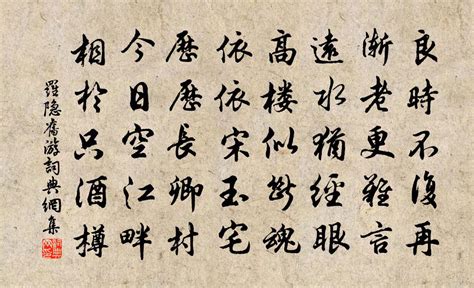 良時不復再
漸老更難言
遠水猶經眼
高楼似断魂
依依宋玉宅
歷歷長卿村
今日空江畔
相於只酒樽
羅隐舊游詞典網集